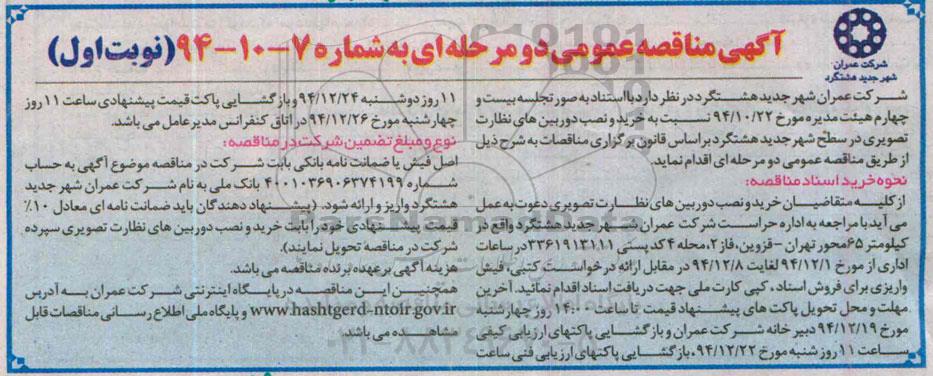 آگهی مناقصه عمومی دو مرحله ای به شماره ۷-۱۰-۹۴ (نوبت اول)
شرکت عمران
شهر جدید هشتگرد
شرکت عمران شهر جدید هشتگرد در نظر دارد با استناد به صورتجلسه بیست و
چهارم هیئت مدیره مورخ ۹۴/۱۰/۲۲ نسبت به خرید و نصب دوربین های نظارت
تصویری در سطح شهر جدید هشتگرد بر اساس قانون برگزاری مناقصات به شرح ذیل
از طریق مناقصه عمومی دو مرحله ای اقدام نماید.
نحوه خرید اسناد مناقصه:
از کلیه متقاضیان خرید و نصب دوربین های نظارت تصویری دعوت به عمل
می آید با مراجعه به اداره حراست شرکت عمران شهر جدید هشتگرد واقع در
کیلومتر ۶۵ محور تهران - قزوین، فاز ۲، محله ۴ کد پستی ۳۳۶۱۹۱۳۱۱۱ در ساعات
اداری از مورخ ۹۴/۱۲/۱ لغایت ۹۴/۱۲/۸ در مقابل ارائه درخواست کتبی، فیش
واریزی برای فروش اسناد، کپی کارت ملی جهت دریافت اسناد اقدام نمائید. آخرین
مهلت و محل تحویل پاکت های پیشنهاد قیمت تا ساعت ۱۴:۰۰ روز چهارشنبه
مورخ ۹۴/۱۲/۱۹ دبیر خانه شرکت عمران و بازگشایی پاکتهای ارزیابی کیفی
ساعت ۱۱ روز شنبه مورخ ۹۴/۱۲/۲۲، بازگشایی پاکتهای ارزیابی فنی ساعت
۱۱ روز دوشنبه ۹۴/۱۲/۲۴ و بازگشایی پاکت قیمت پیشنهادی ساعت ۱۱ روز
چهارشنبه مورخ ۹۴/۱۲/۲۶ در اتاق کنفرانس مدیر عامل می باشد.
نوع و مبلغ تضمین شرکت در مناقصه:
اصل فیش یا ضمانت نامه بانکی بابت شرکت در مناقصه موضوع آگهی به حساب
شماره ۴۰۰۱۰۳۶۹۰۶۳۷۴۱۹۹ بانک ملی به نام شرکت عمران شهر جدید
هشتگرد واریز و ارائه شود. (پیشنهاد دهندگان باید ضمانت نامه ای معادل ۱۰٪
قیمت پیشنهادی خود را بابت خرید و نصب دوربین های نظارت تصویری سپرده
شرکت در مناقصه تحویل نمایند).
هزینه آگهی بر عهده برنده مناقصه می باشد.
همچنین این مناقصه در پایگاه اینترنتی شرکت عمران به آدرس
www.hashtgerd-ntoir.gov.ir و پایگاه ملی اطلاع رسانی مناقصات قابل
مشاهده می باشد.
ParsNamadData